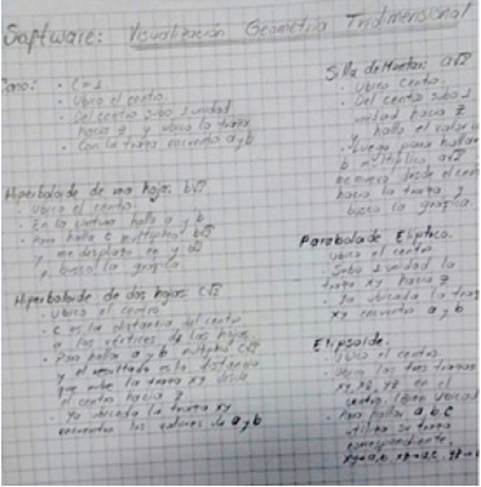 Software: Visualización Geometría Tridimensional
Cono: · C=1
· Ubico el centro.
· Del centro subo 1 unidad
hacia z y ubico la traza
· Con la traza encuentro a y b
Hiperboloide de una hoja: b√2
· Ubico el centro.
· En la cintura hallo a y b
· Para hallar c multiplico b√2
y me desplazo en y b√2
y busco la gráfica.
Hiperboloide de dos hojas: c√2
· Ubico el centro
· C es la distancia del centro
a los vértices de las hojas.
· Para hallar a y b multiplico c√2
y el resultado es la distancia
que sube la traza xy desde
el centro hacia z
· Ya ubicada la traza xy
encuentro los valores de a y b
Silla de Montar: a√2
· Ubico centro.
· Del centro subo 1
unidad hacia z
y hallo el valor
· Luego para hallar
b multiplico a√2
me muevo desde el cen
hacia la traza y
busco la gráfica.
Paraboloide Elíptico.
Ubico el centro
· Subo 1 unidad la
traza xy hacia z
· Ya ubicada la traz
xy encuentro a y b
Elipsoide.
· Ubico el centro
· Ubico las tres trazas
xy, xz, yz en el
centro.
· Para hallar a, b, c
utilizo su traza
correspondiente.
xy=a,b xz=a,c